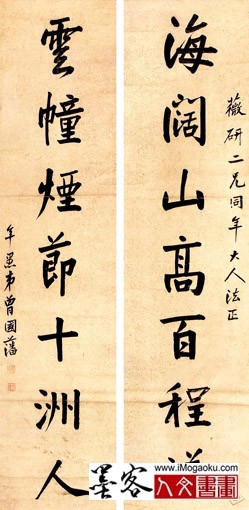 薇研二兄同年大人法正
海闊山高百程
雲幢煙節十洲人
年愚弟曾國藩
www.iMogaoku.com
墨客人文書畫